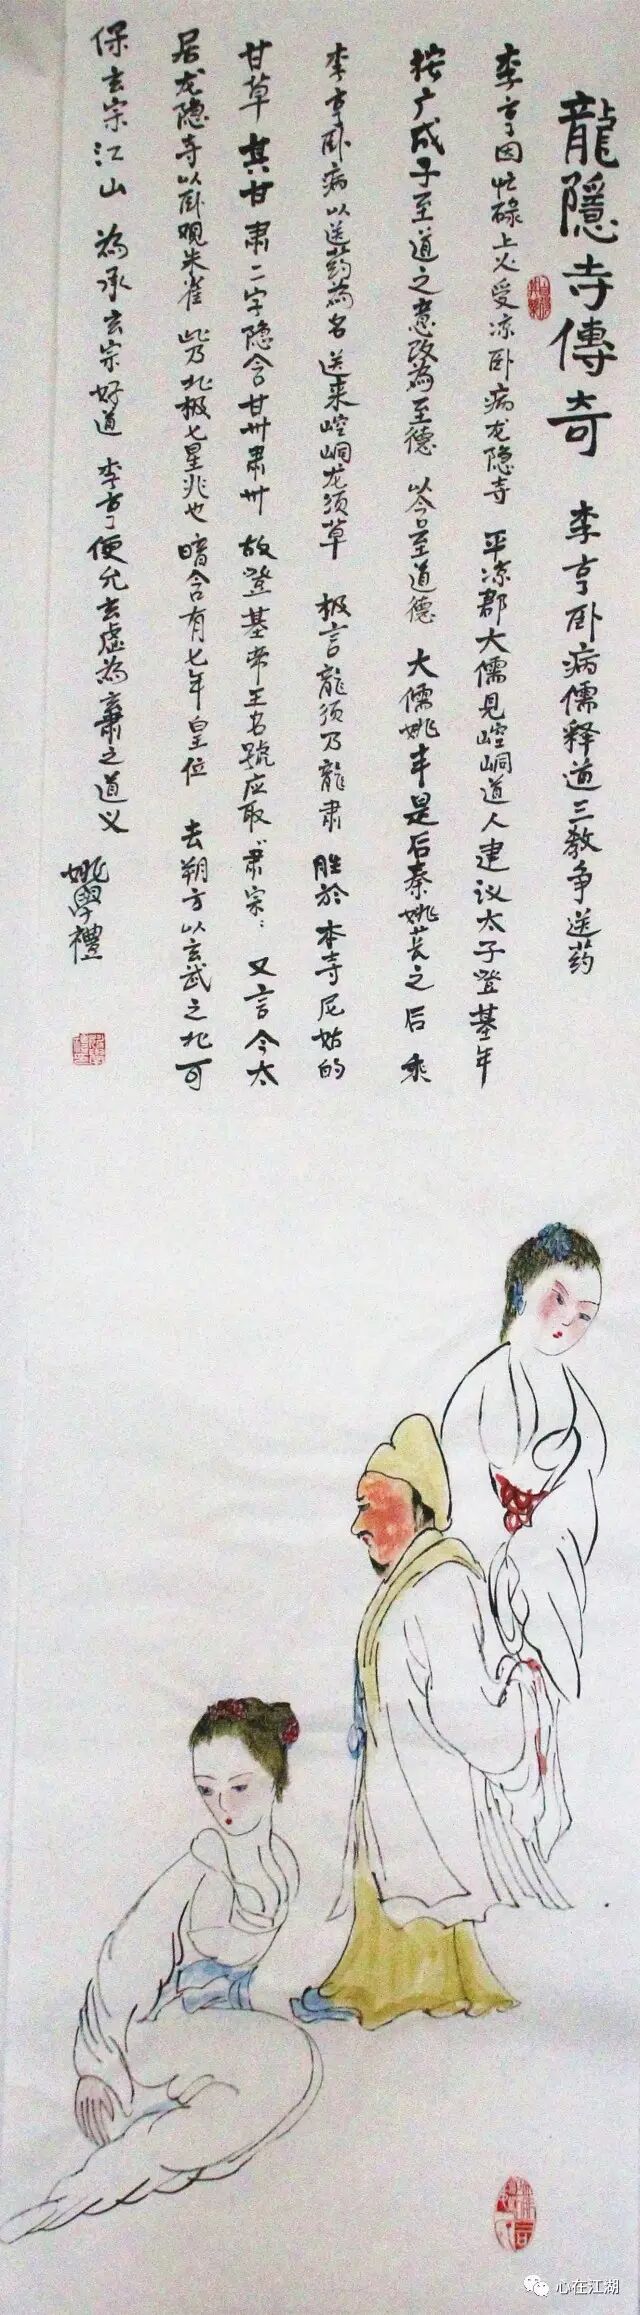 龍隱寺傳奇 李亨卧病儒释道三教争送药
李亨因忙碌上火受凉卧病龙隐寺 平凉郡大儒见崆峒道人建议太子登基年
按广成子至道之意改為至德 以合至道德 大儒姚丰是后秦姚苌之后 乘
李亨卧病以送药為名 送来崆峒龙须草 极言龍须乃龍肃 胜於本寺尼姑的
甘草 其甘肃二字隐含甘州肃州 故登基帝王名號应取"肃宗" 又言今太
居龙隐寺以卧观朱雀 此乃北极七星兆也 暗含有七年皇位 去朔方以玄武之北可
保玄宗江山 為承玄宗好道 李亨便允玄虚為肃之道义
姚學禮
心在江湖